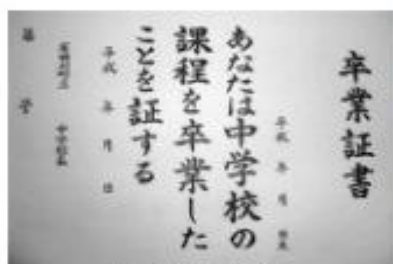 卒業証書
平成 年 月 日生
あなたは中学校の
課程を卒業した
ことを証する
平成 年 月 日
中学校長
第 号